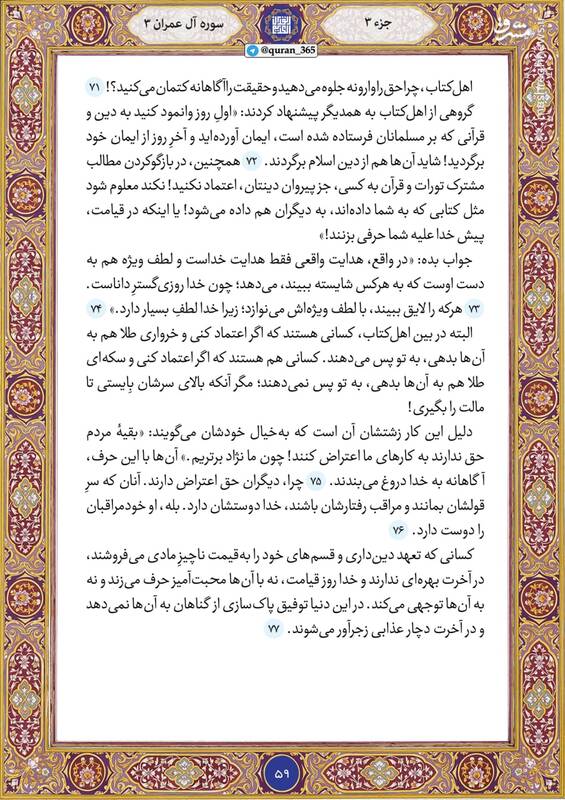 جزء ۳
سوره آل عمران ۳
@quran_365
مشرق
mashreghnews.ir
اهل کتاب، چرا حق را وارونه جلوه می‌دهید و حقیقت را آگاهانه کتمان می‌کنید؟! ۷۱
گروهی از اهل کتاب به همدیگر پیشنهاد کردند: «اولِ روز وانمود کنید به دین و
قرآنی که بر مسلمانان فرستاده شده است، ایمان آورده‌اید و آخرِ روز از ایمان خود
برگردید! شاید آن‌ها هم از دین اسلام برگردند. ۷۲ همچنین، در بازگوکردن مطالب
مشترک تورات و قرآن به کسی، جز پیروان دینتان، اعتماد نکنید! نکند معلوم شود
مثل کتابی که به شما داده‌اند، به دیگران هم داده می‌شود! یا اینکه در قیامت،
پیش خدا علیه شما حرفی بزنند!»
جواب بده: «در واقع، هدایت واقعی فقط هدایت خداست و لطف ویژه هم به
دست اوست که به هرکس شایسته ببیند، می‌دهد؛ چون خدا روزی‌گسترِ داناست.
۷۳ هرکه را لایق ببیند، با لطف ویژه‌اش می‌نوازد؛ زیرا خدا لطفِ بسیار دارد.» ۷۴
البته در بین اهل کتاب، کسانی هستند که اگر اعتماد کنی و خرواری طلا هم به
آن‌ها بدهی، به تو پس می‌دهند. کسانی هم هستند که اگر اعتماد کنی و سکه‌ای
طلا هم به آن‌ها بدهی، به تو پس نمی‌دهند؛ مگر آنکه بالای سرشان بایستی تا
مالت را بگیری!
دلیل این کار زشتشان آن است که به‌خیال خودشان می‌گویند: «بقیهٔ مردم
حق ندارند به کارهای ما اعتراض کنند! چون ما نژاد برتریم.» آن‌ها با این حرف،
آگاهانه به خدا دروغ می‌بندند. ۷۵ چرا، دیگران حق اعتراض دارند. آنان که سرِ
قولشان بمانند و مراقب رفتارشان باشند، خدا دوستشان دارد. بله، او خودمراقبان
را دوست دارد. ۷۶
کسانی که تعهد دین‌داری و قسم‌های خود را به‌قیمت ناچیزِ مادی می‌فروشند،
در آخرت بهره‌ای ندارند و خدا روز قیامت، نه با آن‌ها محبت‌آمیز حرف می‌زند و نه
به آن‌ها توجهی می‌کند. در این دنیا توفیق پاک‌سازی از گناهان به آن‌ها نمی‌دهد
و در آخرت دچار عذابی زجرآور می‌شوند. ۷۷
۵۹